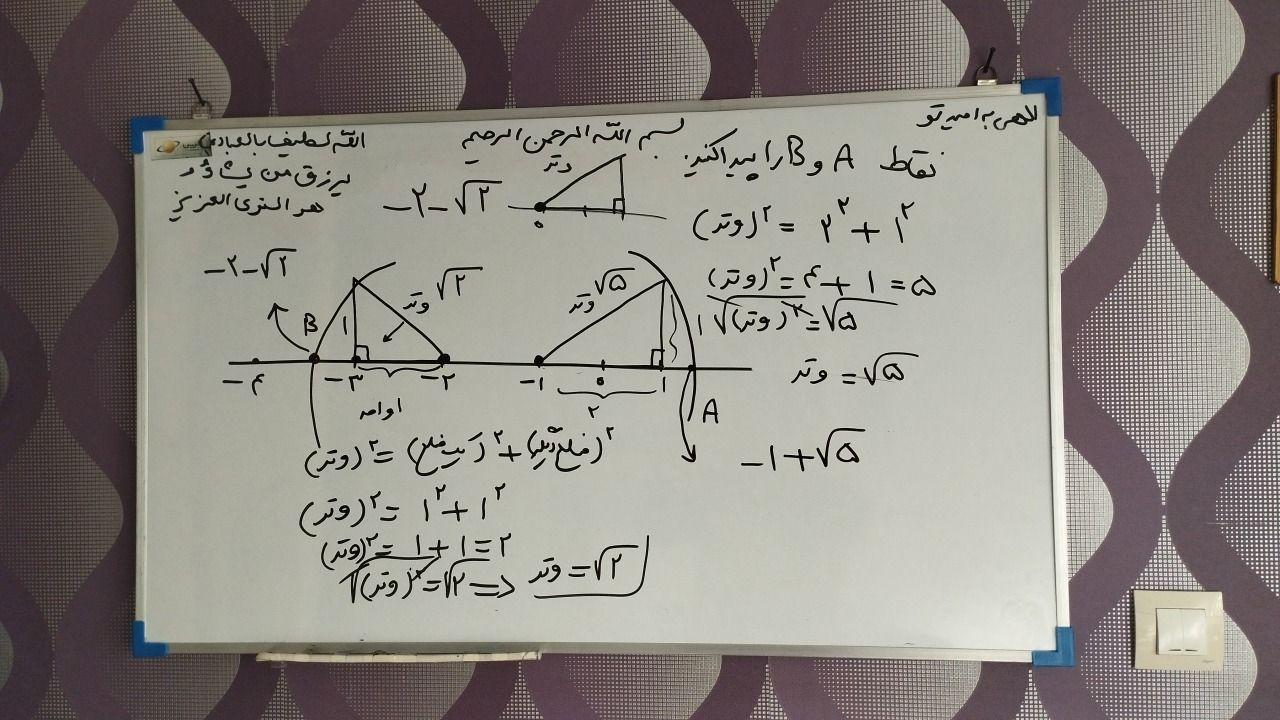 الهی به امید تو
بسم الله الرحمن الرحیم
الله لطیف بالعباده
یرزق من یشاؤ و
هو القوی العزیز
نقاط A و B را پیدا کنید.
وتر
۰
-۲-√۲
(وتر)^۲ = ۲^۲ + ۱^۲
(وتر)^۲ = ۴ + ۱ = ۵
√(وتر)^۲ = √۵
وتر = √۵
-۱+√۵
-۲-√۲
B
۱
وتر √۲
وتر √۵
۱
-۴ -۳ -۲ -۱ ۰ ۱
A
۲
(وتر)^۲ = (یک ضلع)^۲ + (ضلع دیگر)^۲
(وتر)^۲ = ۱^۲ + ۱^۲
(وتر)^۲ = ۱ + ۱ = ۲
√(وتر)^۲ = √۲ => وتر = √۲